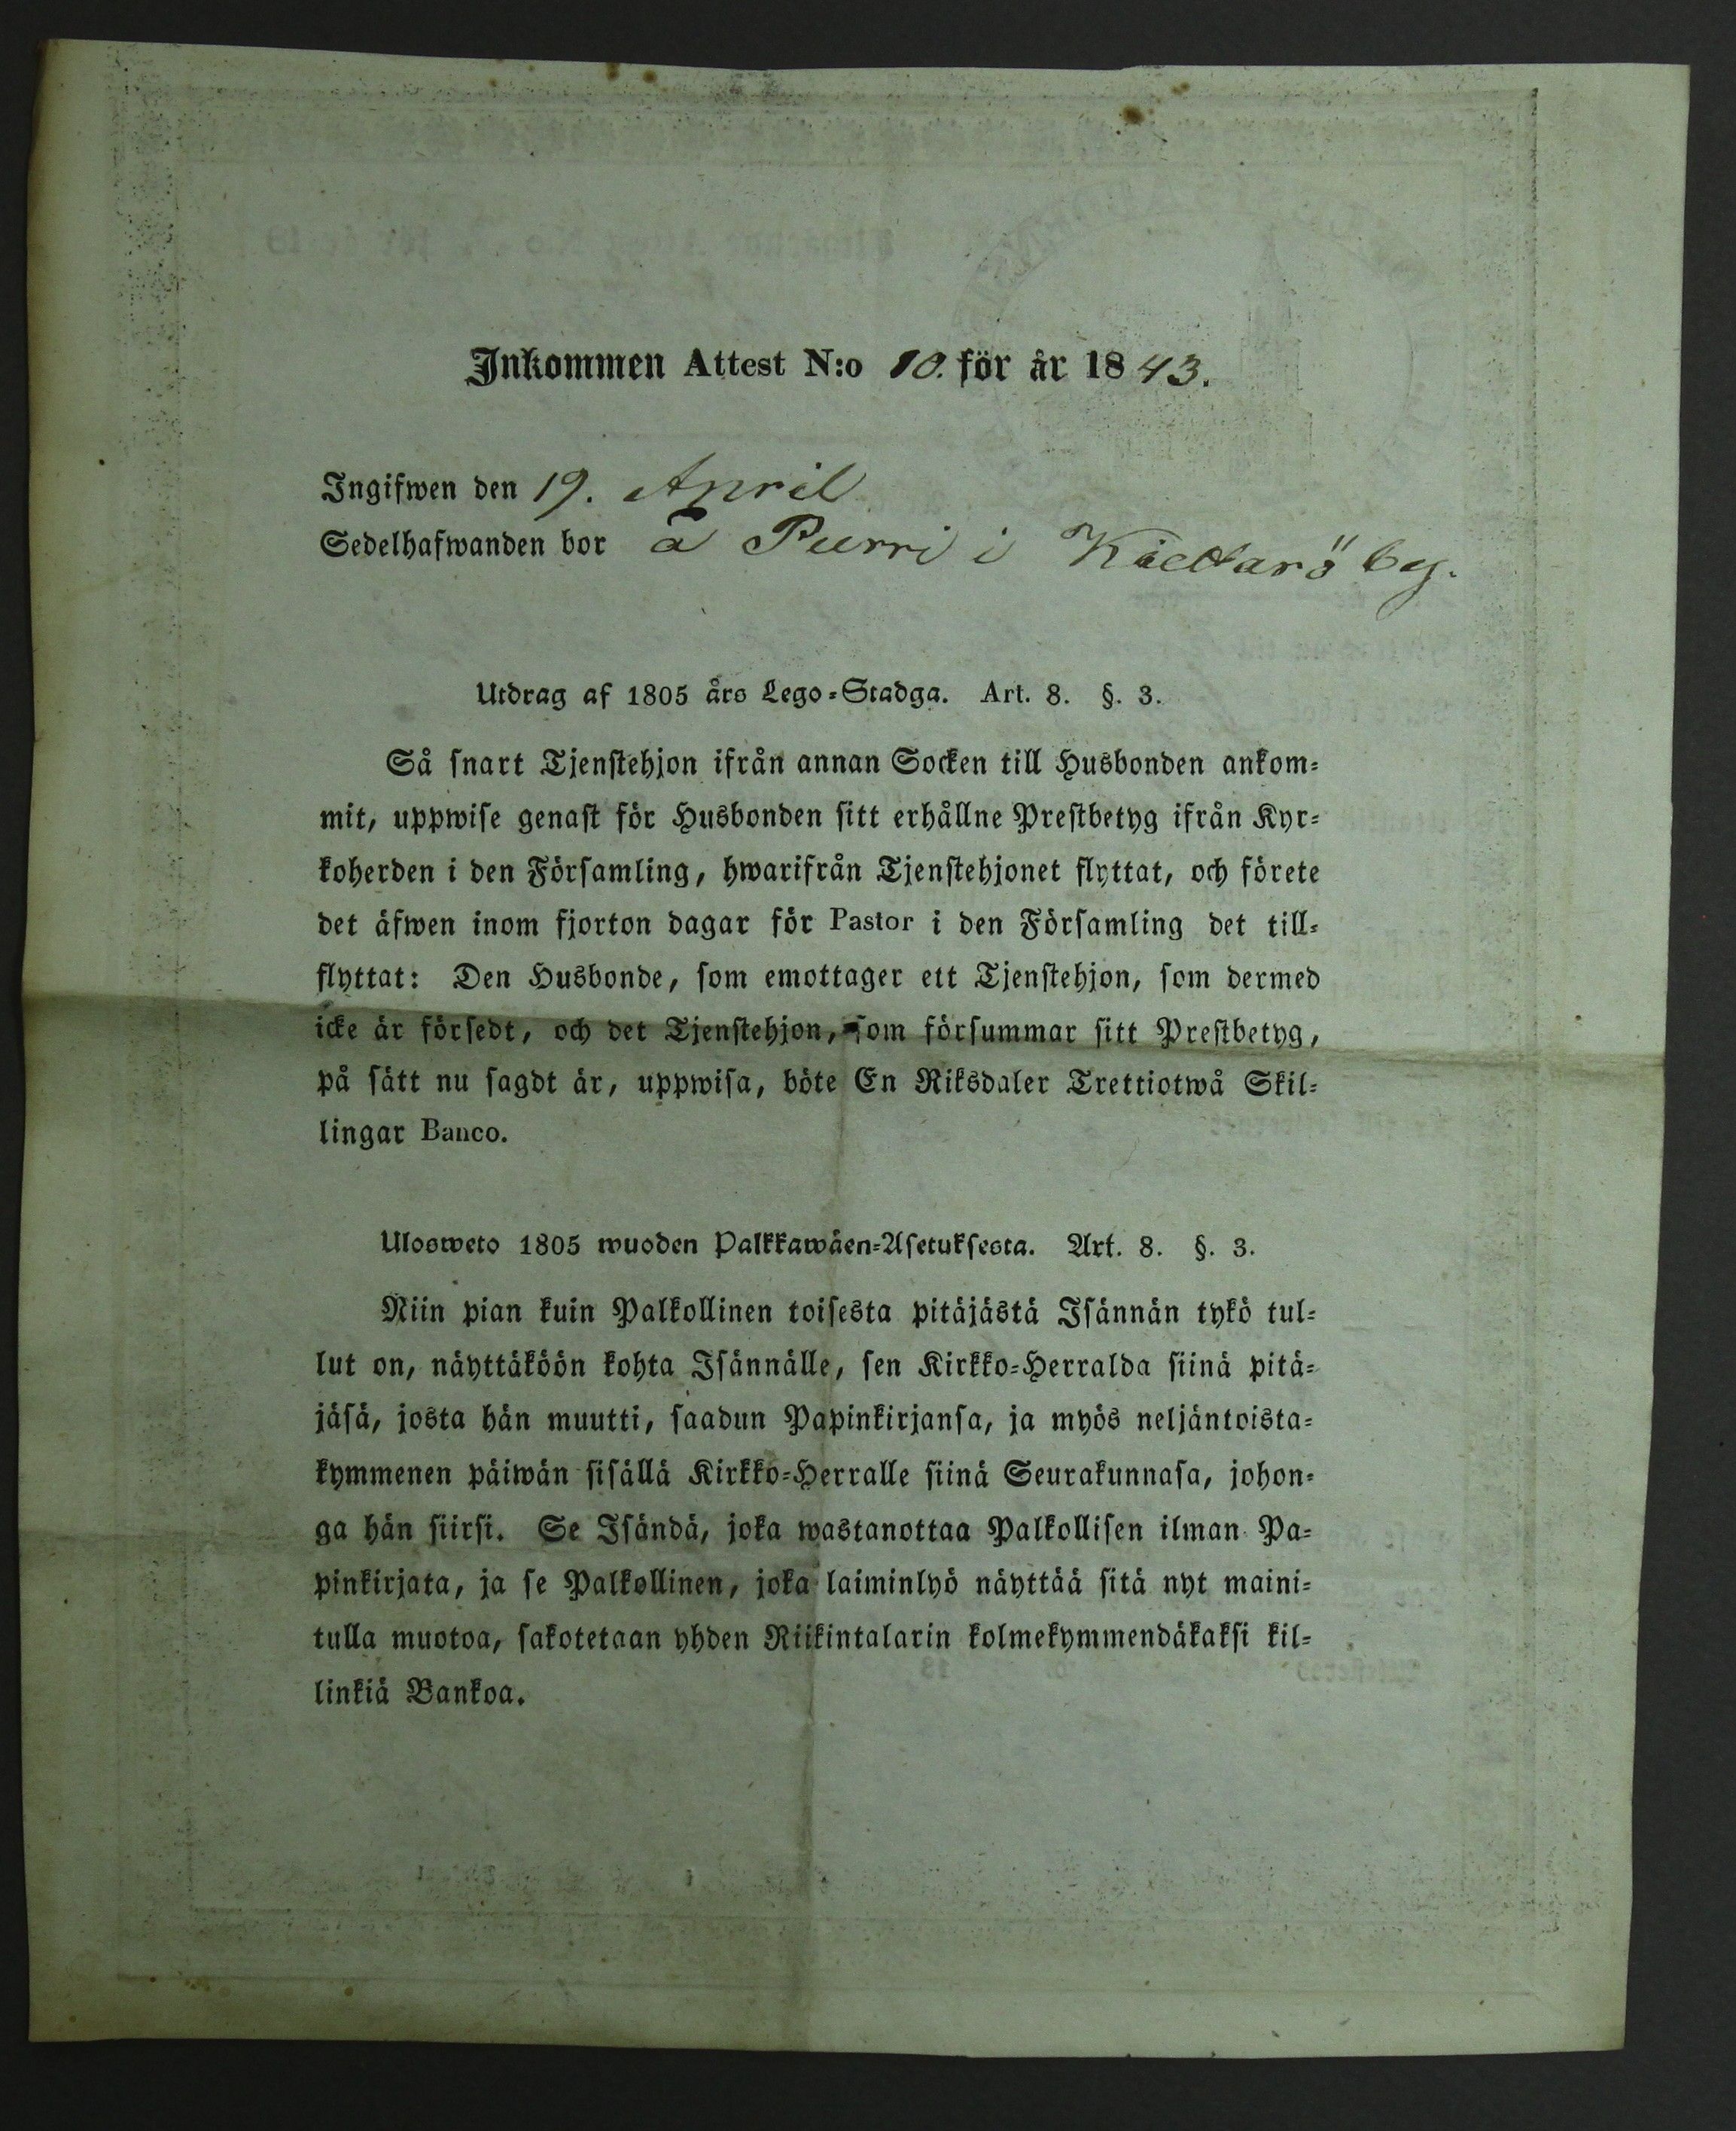 Inkommen Attest N:o 10. för år 1843.
Ingifwen den 19. April
Sedelhafwanden bor å Purri i by.
Utdrag af 1805 års Lego-Stadga. Art. 8. §. 3.
Så snart Tjenstehjon ifrån annan Socken till Husbonden ankom-
mit, uppwise genast för Husbonden sitt erhållne Prestbetyg ifrån Kyr-
koherden i den Församling, hwarifrån Tjenstehjonet flyttat, och förete
det äfwen inom fjorton dagar för Pastor i den Församling det till-
flyttat: Den Husbonde, som emottager ett Tjenstehjon, som dermed
icke är försedt, och det Tjenstehjon, som försummar sitt Prestbetyg,
på sätt nu sagdt är, uppwisa, böte En Riksdaler Trettiotwå Skil-
lingar Banco.
Ulosweto 1805 wuoden Palkkawäen-Asetuksesta. Art. 8. §. 3.
Niin pian kuin Palkollinen toisesta pitäjästä Isännän tykö tul-
lut on, näyttäköön kohta Isännälle, sen Kirkko-Herralda siinä pitä-
jäsä, josta hän muutti, saadun Papinkirjansa, ja myös neljäntoista-
kymmenen päiwän sisällä Kirkko-Herralle siinä Seurakunnasa, johon-
ga hän siirsi. Se Isändä, joka wastanottaa Palkollisen ilman Pa-
pinkirjata, ja se Palkollinen, joka laiminlyö näyttää sitä nyt maini-
tulla muotoa, sakotetaan yhden Riikintalarin kolmekymmendäkaksi kil-
linkiä Bankoa.